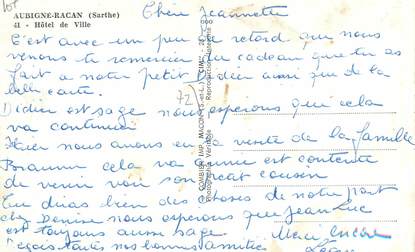 AUBIGNE-RACAN (Sarthe)
41 - Hôtel de Ville
Chère Jeannette
C'est avec un peu de retard que nous
venons te remercier du cadeau que tu as
fait a notre petit Didier ainsi que de la
belle carte.
Didier est sage nous esperons que cela
va continuer
Hier nous avons eu la visite de la famille
Braunn cela va Annie est contente
de venir voir son petit cousin
Tu diras bien des choses de notre part
chez Denise nous esperons que Jean Luc
est toujours aussi sage
Merci encore
reçois toutes nos bonnes amitiés
72
COMBIER IMP. MACON